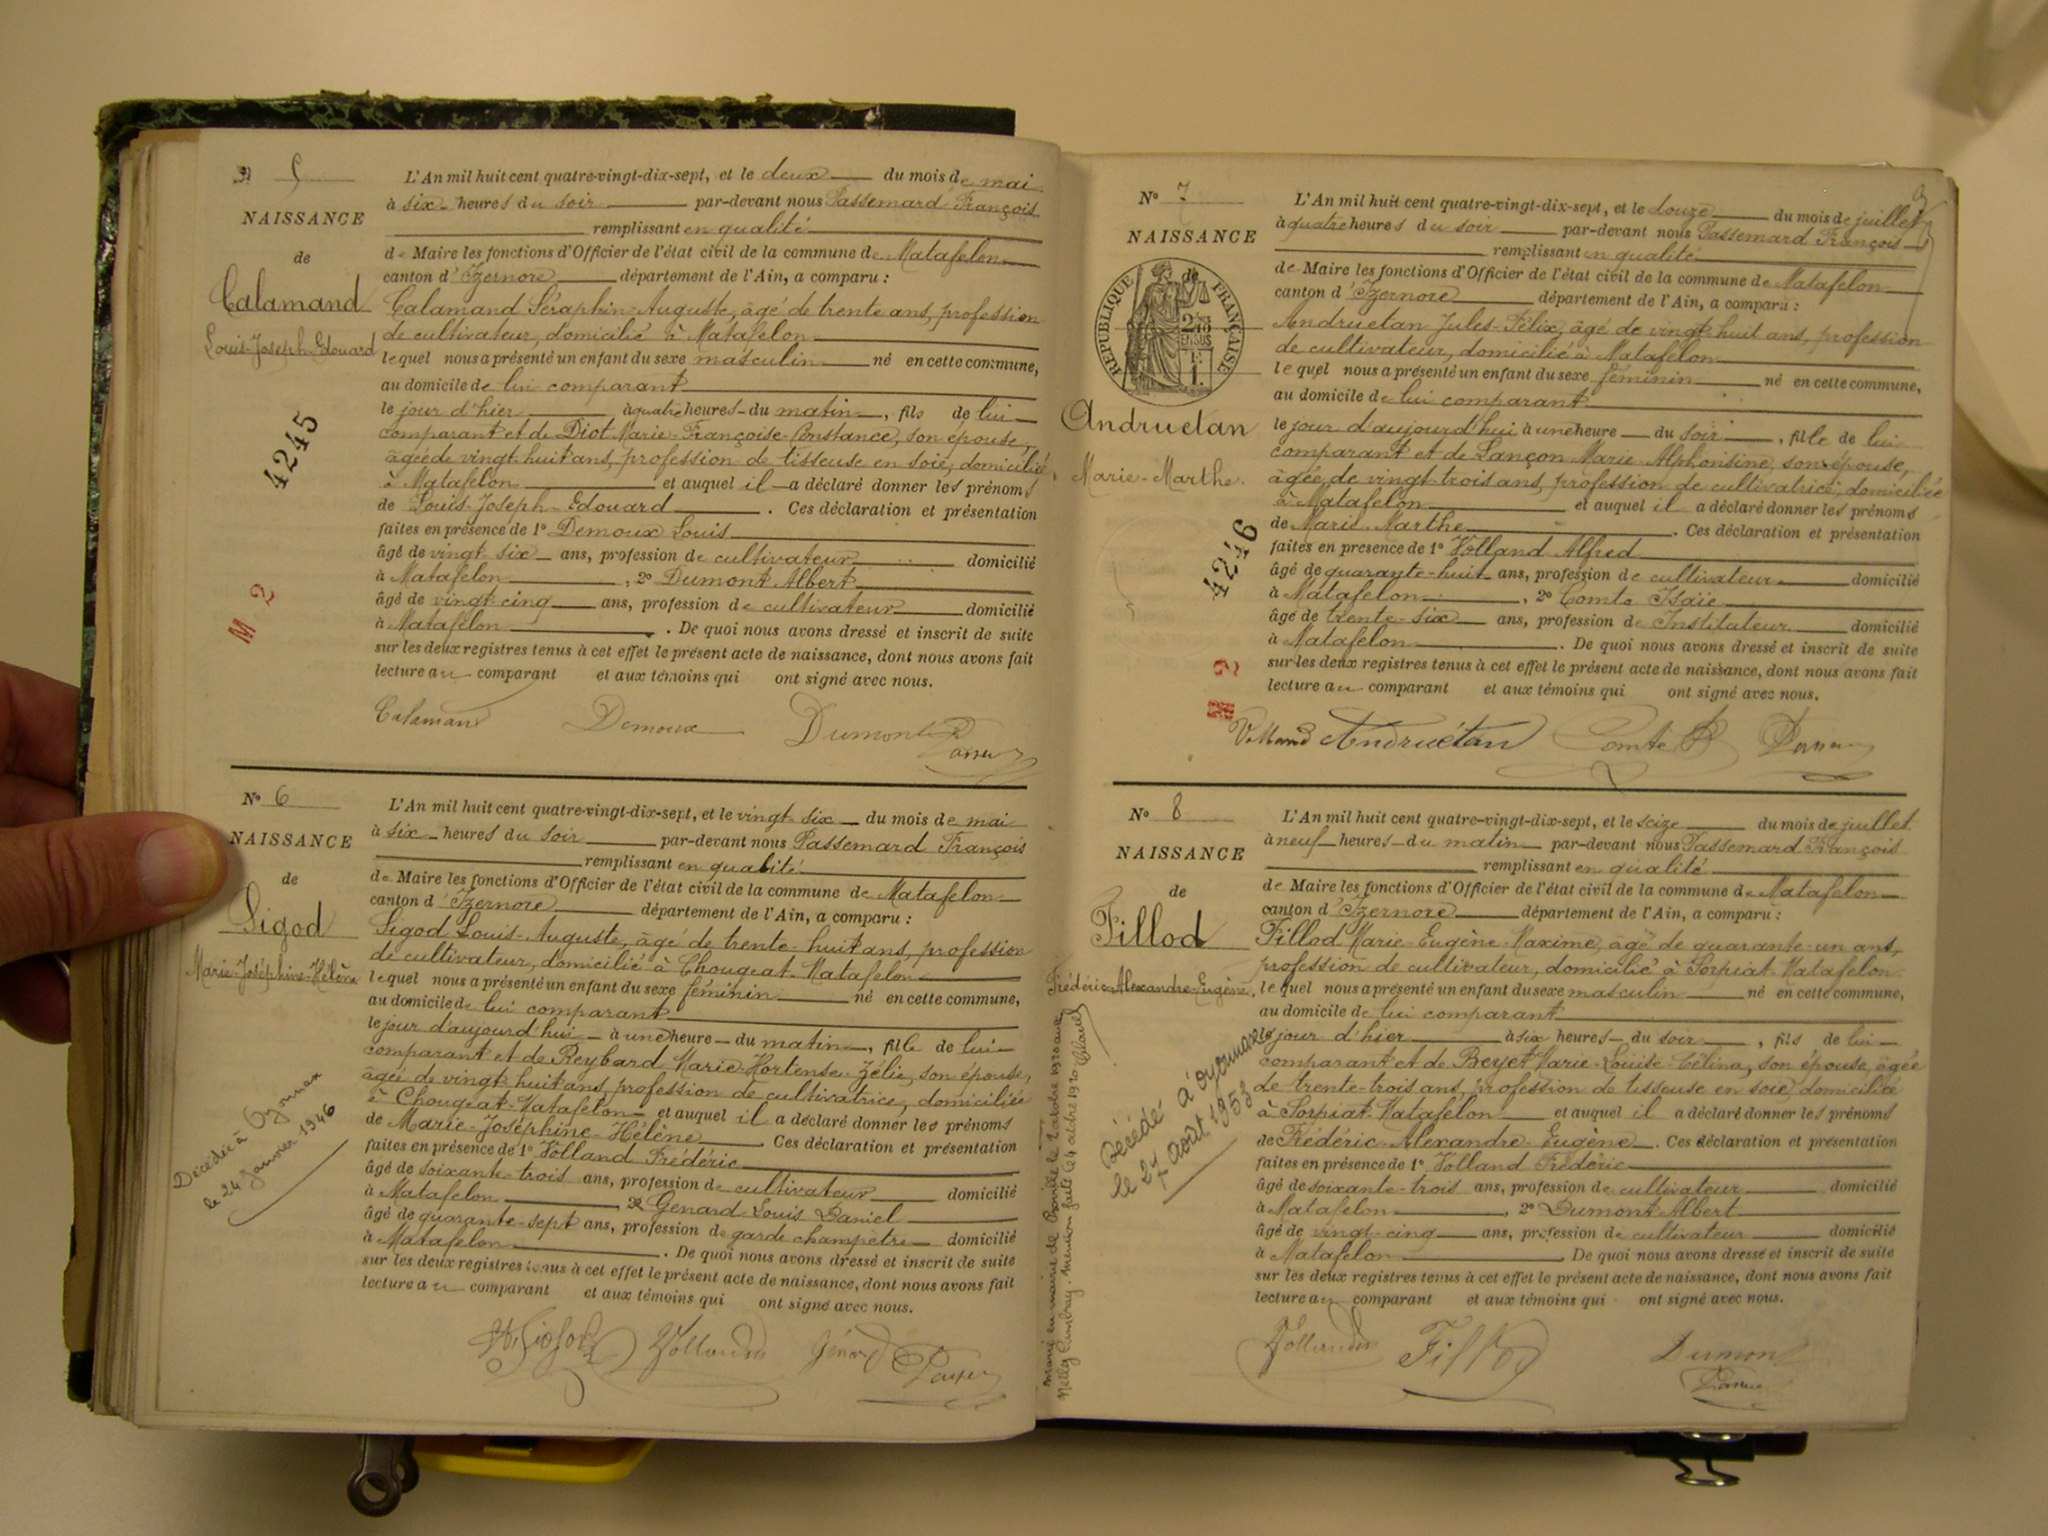 N° 5
NAISSANCE
de
Calamand
Louis-Joseph-Edouard
4245
M 2
L'An mil huit cent quatre-vingt-dix-sept, et le deux du mois de mai
à six heures du soir par-devant nous Passemard François
remplissant en qualité
de Maire les fonctions d'Officier de l'état civil de la commune de Matafelon
canton d'Izernore département de l'Ain, a comparu :
Calamand Séraphin-Auguste, âgé de trente ans, profession
de cultivateur, domicilié à Matafelon
lequel nous a présenté un enfant du sexe masculin né en cette commune,
au domicile de lui comparant
le jour d'hier à quatre heures du matin, fils de lui
comparant et de Diot Marie-Françoise-Constance, son épouse,
âgée de vingt-huit ans, profession de tisseuse en soie, domiciliée
à Matafelon et auquel il a déclaré donner les prénoms
de Louis-Joseph-Edouard. Ces déclaration et présentation
faites en présence de 1° Demoux Louis
âgé de vingt six ans, profession de cultivateur domicilié
à Matafelon, 2° Dumont Albert
âgé de vingt-cinq ans, profession de cultivateur domicilié
à Matafelon. De quoi nous avons dressé et inscrit de suite
sur les deux registres tenus à cet effet le présent acte de naissance, dont nous avons fait
lecture au comparant et aux témoins qui ont signé avec nous.
Calamand Demoux Dumont
N° 6
NAISSANCE
de
Sigod
Marie-Joséphine-Hélène
Décédée à Oyonnax
le 24 Janvier 1946
L'An mil huit cent quatre-vingt-dix-sept, et le vingt-six du mois de mai
à six heures du soir par-devant nous Passemard François
remplissant en qualité
de Maire les fonctions d'Officier de l'état civil de la commune de Matafelon
canton d'Izernore département de l'Ain, a comparu :
Sigod Louis-Auguste, âgé de trente-huit ans, profession
de cultivateur, domicilié à Chougeat-Matafelon
lequel nous a présenté un enfant du sexe féminin né en cette commune,
au domicile de lui comparant
le jour d'aujourd'hui à une heure du matin, fille de lui
comparant et de Reybard Marie-Hortense-Zélie, son épouse,
âgée de vingt huit ans, profession de cultivatrice, domiciliée
à Chougeat-Matafelon et auquel il a déclaré donner les prénoms
de Marie-Joséphine-Hélène. Ces déclaration et présentation
faites en présence de 1° Volland Frédéric
âgé de soixante-trois ans, profession de cultivateur domicilié
à Matafelon, 2° Genard Louis Daniel
âgé de quarante-sept ans, profession de garde champêtre domicilié
à Matafelon. De quoi nous avons dressé et inscrit de suite
sur les deux registres tenus à cet effet le présent acte de naissance, dont nous avons fait
lecture au comparant et aux témoins qui ont signé avec nous.
Sigod Volland Génard
N° 7
NAISSANCE
de
RÉPUBLIQUE FRANÇAISE
Andruetan
Marie-Marthe.
4246
M 2
L'An mil huit cent quatre-vingt-dix-sept, et le douze du mois de juillet
à quatre heures du soir par-devant nous Passemard François
remplissant en qualité
de Maire les fonctions d'Officier de l'état civil de la commune de Matafelon
canton d'Izernore département de l'Ain, a comparu :
Andruetan Jules-Félix, âgé de vingt huit ans, profession
de cultivateur, domicilié à Matafelon
lequel nous a présenté un enfant du sexe féminin né en cette commune,
au domicile de lui comparant
le jour d'aujourd'hui à une heure du soir, fille de lui
comparant et de Lançon Marie-Alphonsine, son épouse,
âgée de vingt-trois ans, profession de cultivatrice, domiciliée
à Matafelon et auquel il a déclaré donner les prénoms
de Marie-Marthe. Ces déclaration et présentation
faites en présence de 1° Volland Alfred
âgé de quarante-huit ans, profession de cultivateur domicilié
à Matafelon, 2° Comte Isaïe
âgé de trente-six ans, profession de Instituteur domicilié
à Matafelon. De quoi nous avons dressé et inscrit de suite
sur les deux registres tenus à cet effet le présent acte de naissance, dont nous avons fait
lecture au comparant et aux témoins qui ont signé avec nous.
Volland Andruétan Comte
N° 8
NAISSANCE
de
Fillod
Frédéric-Alexandre-Eugène.
Décédé à Oyonnax
le 27 août 1953
Marié en mairie de le 2 octobre 1920 avec
Nelly . Mention faite le 4 octobre 1920
L'An mil huit cent quatre-vingt-dix-sept, et le seize du mois de juillet
à neuf heures du matin par-devant nous Passemard François
remplissant en qualité
de Maire les fonctions d'Officier de l'état civil de la commune de Matafelon
canton d'Izernore département de l'Ain, a comparu :
Fillod Marie-Eugène-Maxime, âgé de quarante-un ans,
profession de cultivateur, domicilié à Sorpiat-Matafelon
lequel nous a présenté un enfant du sexe masculin né en cette commune,
au domicile de lui comparant
le jour d'hier à six heures du soir, fils de lui
comparant et de Beyet Marie-Louise-Célina, son épouse, âgée
de trente-trois ans, profession de tisseuse en soie, domiciliée
à Sorpiat-Matafelon et auquel il a déclaré donner les prénoms
de Frédéric-Alexandre-Eugène. Ces déclaration et présentation
faites en présence de 1° Volland Frédéric
âgé de soixante-trois ans, profession de cultivateur domicilié
à Matafelon, 2° Dumont Albert
âgé de vingt-cinq ans, profession de cultivateur domicilié
à Matafelon. De quoi nous avons dressé et inscrit de suite
sur les deux registres tenus à cet effet le présent acte de naissance, dont nous avons fait
lecture au comparant et aux témoins qui ont signé avec nous.
Volland Fillod Dumont